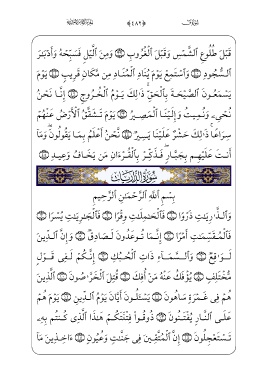 قَبْلَ طُلُوعِ ٱلشَّمْسِ وَقَبْلَ ٱلْغُرُوبِ ۝ وَمِنَ ٱلَّيْلِ فَسَبِّحْهُ وَأَدْبَٰرَ
ٱلسُّجُودِ ۝ وَٱسْتَمِعْ يَوْمَ يُنَادِ ٱلْمُنَادِ مِن مَّكَانٍ قَرِيبٍ ۝ يَوْمَ
يَسْمَعُونَ ٱلصَّيْحَةَ بِٱلْحَقِّ ذَٰلِكَ يَوْمُ ٱلْخُرُوجِ ۝ إِنَّا نَحْنُ
نُحْىِۦ وَنُمِيتُ وَإِلَيْنَا ٱلْمَصِيرُ ۝ يَوْمَ تَشَقَّقُ ٱلْأَرْضُ عَنْهُمْ
سِرَاعًا ذَٰلِكَ حَشْرٌ عَلَيْنَا يَسِيرٌ ۝ نَّحْنُ أَعْلَمُ بِمَا يَقُولُونَ وَمَآ
أَنتَ عَلَيْهِم بِجَبَّارٍ فَذَكِّرْ بِٱلْقُرْءَانِ مَن يَخَافُ وَعِيدِ ۝
سُورَةُ ٱلذَّارِيَاتِ
بِسْمِ ٱللَّهِ ٱلرَّحْمَٰنِ ٱلرَّحِيمِ
وَٱلذَّٰرِيَٰتِ ذَرْوًا ۝ فَٱلْحَٰمِلَٰتِ وِقْرًا ۝ فَٱلْجَٰرِيَٰتِ يُسْرًا ۝
فَٱلْمُقَسِّمَٰتِ أَمْرًا ۝ إِنَّمَا تُوعَدُونَ لَصَادِقٌ ۝ وَإِنَّ ٱلدِّينَ
لَوَٰقِعٌ ۝ وَٱلسَّمَآءِ ذَاتِ ٱلْحُبُكِ ۝ إِنَّكُمْ لَفِى قَوْلٍ
مُّخْتَلِفٍ ۝ يُؤْفَكُ عَنْهُ مَنْ أُفِكَ ۝ قُتِلَ ٱلْخَرَّٰصُونَ ۝ ٱلَّذِينَ
هُمْ فِى غَمْرَةٍ سَاهُونَ ۝ يَسْـَٔلُونَ أَيَّانَ يَوْمُ ٱلدِّينِ ۝ يَوْمَ هُمْ
عَلَى ٱلنَّارِ يُفْتَنُونَ ۝ ذُوقُوا۟ فِتْنَتَكُمْ هَٰذَا ٱلَّذِى كُنتُم بِهِۦ
تَسْتَعْجِلُونَ ۝ إِنَّ ٱلْمُتَّقِينَ فِى جَنَّٰتٍ وَعُيُونٍ ۝ ءَاخِذِينَ مَآ